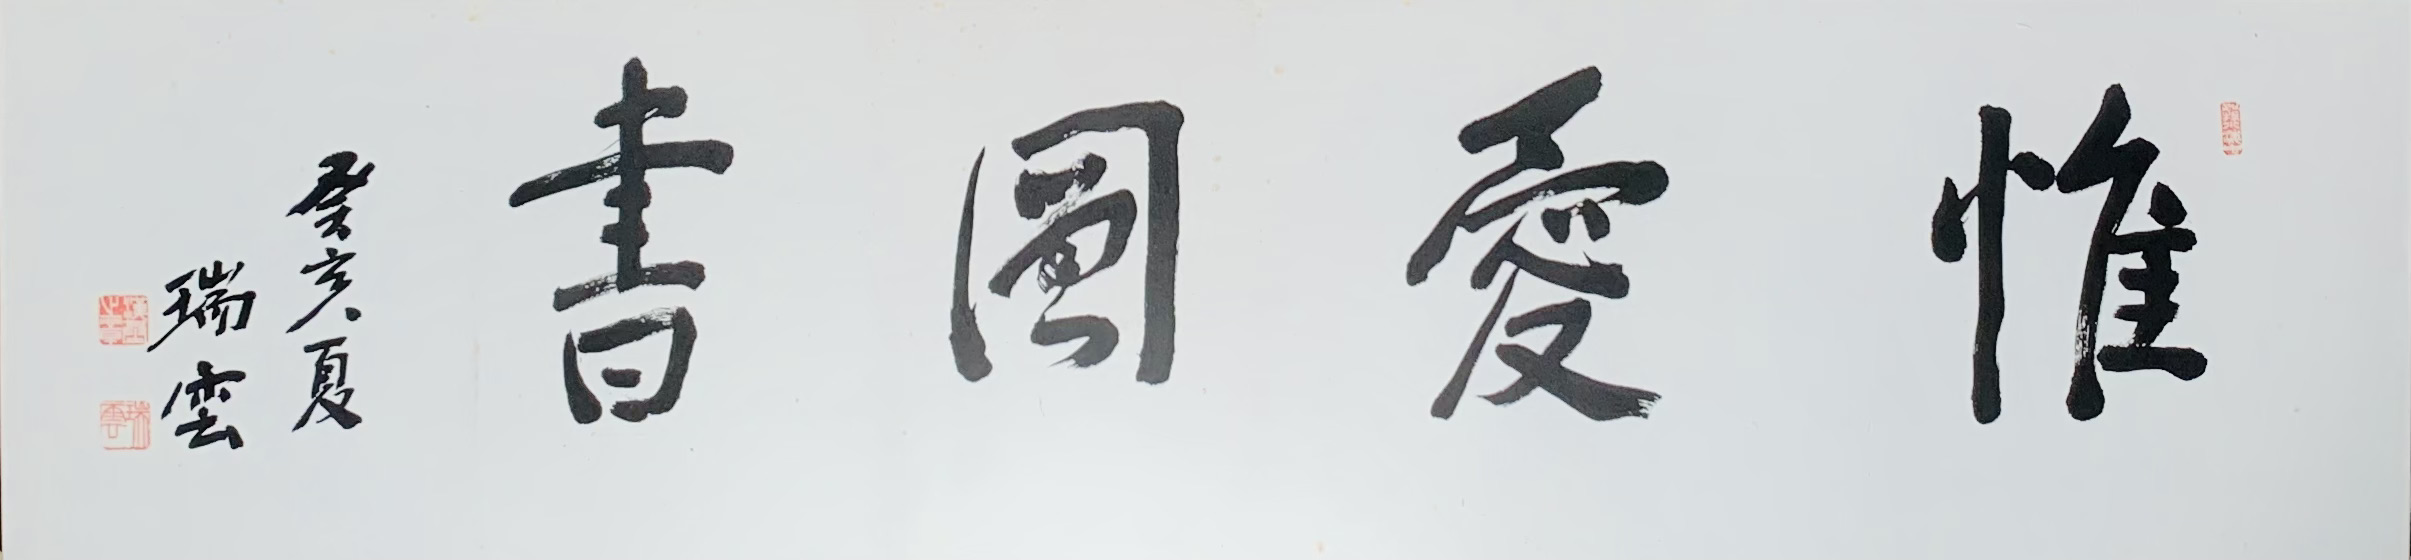 惟愛圖書
癸亥夏
瑞雲
瑞雲